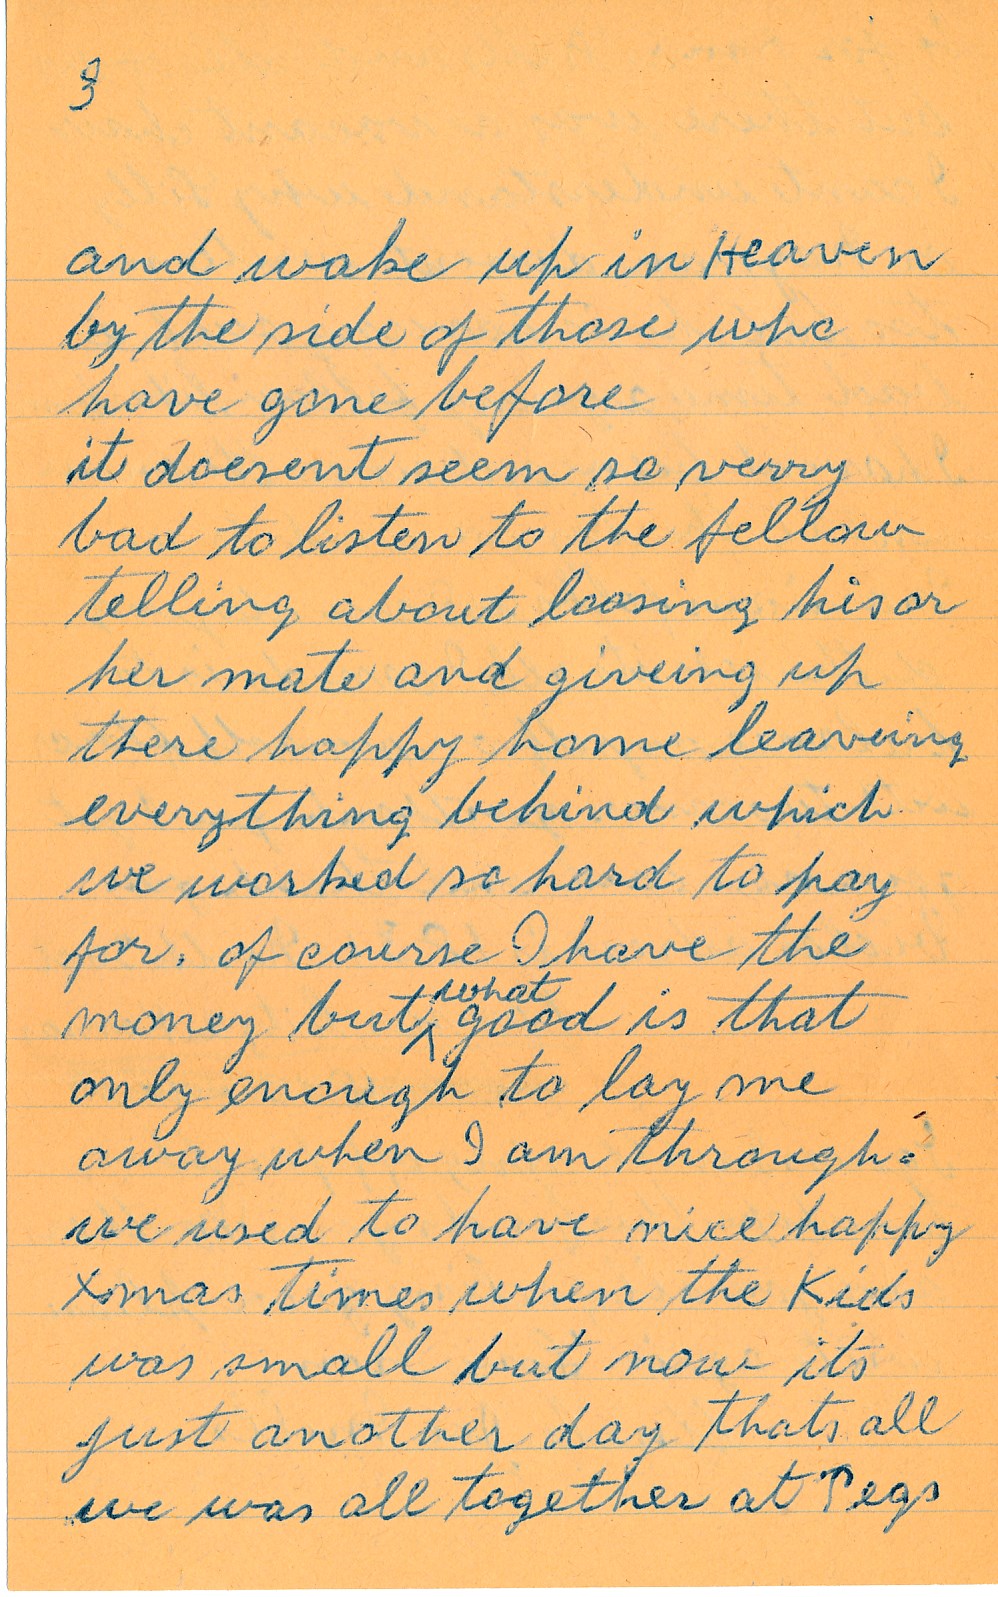 3
and wake up in Heaven
by the side of those who
have gone before
it doesent seem so verry
bad to listen to the fellow
telling about loosing his or
her mate and giveing up
there happy home leaveing
everything behind which
we worked so hard to pay
for. of course I have the
money but what good is that
only enough to lay me
away when I am through.
we used to have nice happy
Xmas times when the Kids
was small but now its
just another day thats all
we was all together at Pegs